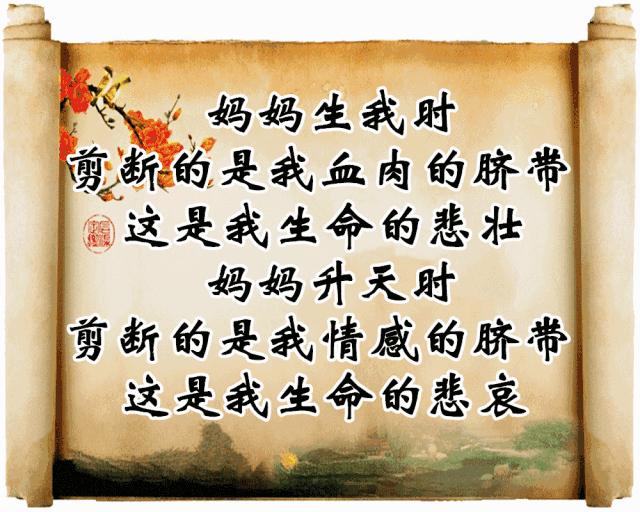 妈妈生我时
剪断的是我血肉的脐带
这是我生命的悲壮
妈妈升天时
剪断的是我情感的脐带
这是我生命的悲哀